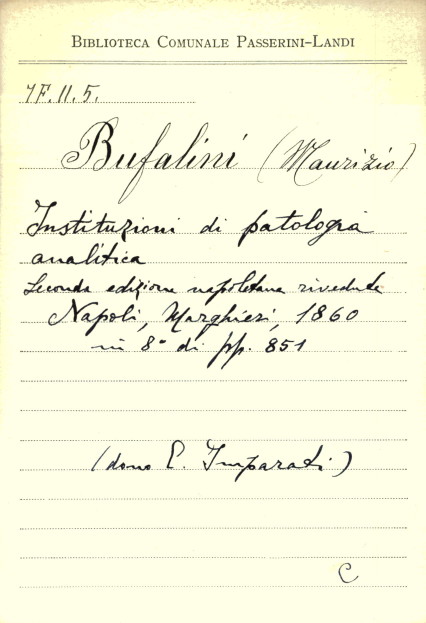 BIBLIOTECA COMUNALE PASSERINI-LANDI
7F.II.5.
Bufalini (Maurizio)
Instituzioni di patologia
analitica
Seconda edizione napoletana riveduta
Napoli, Marghieri, 1860
in 8° di pp. 851
(dono E. Imparati)
C